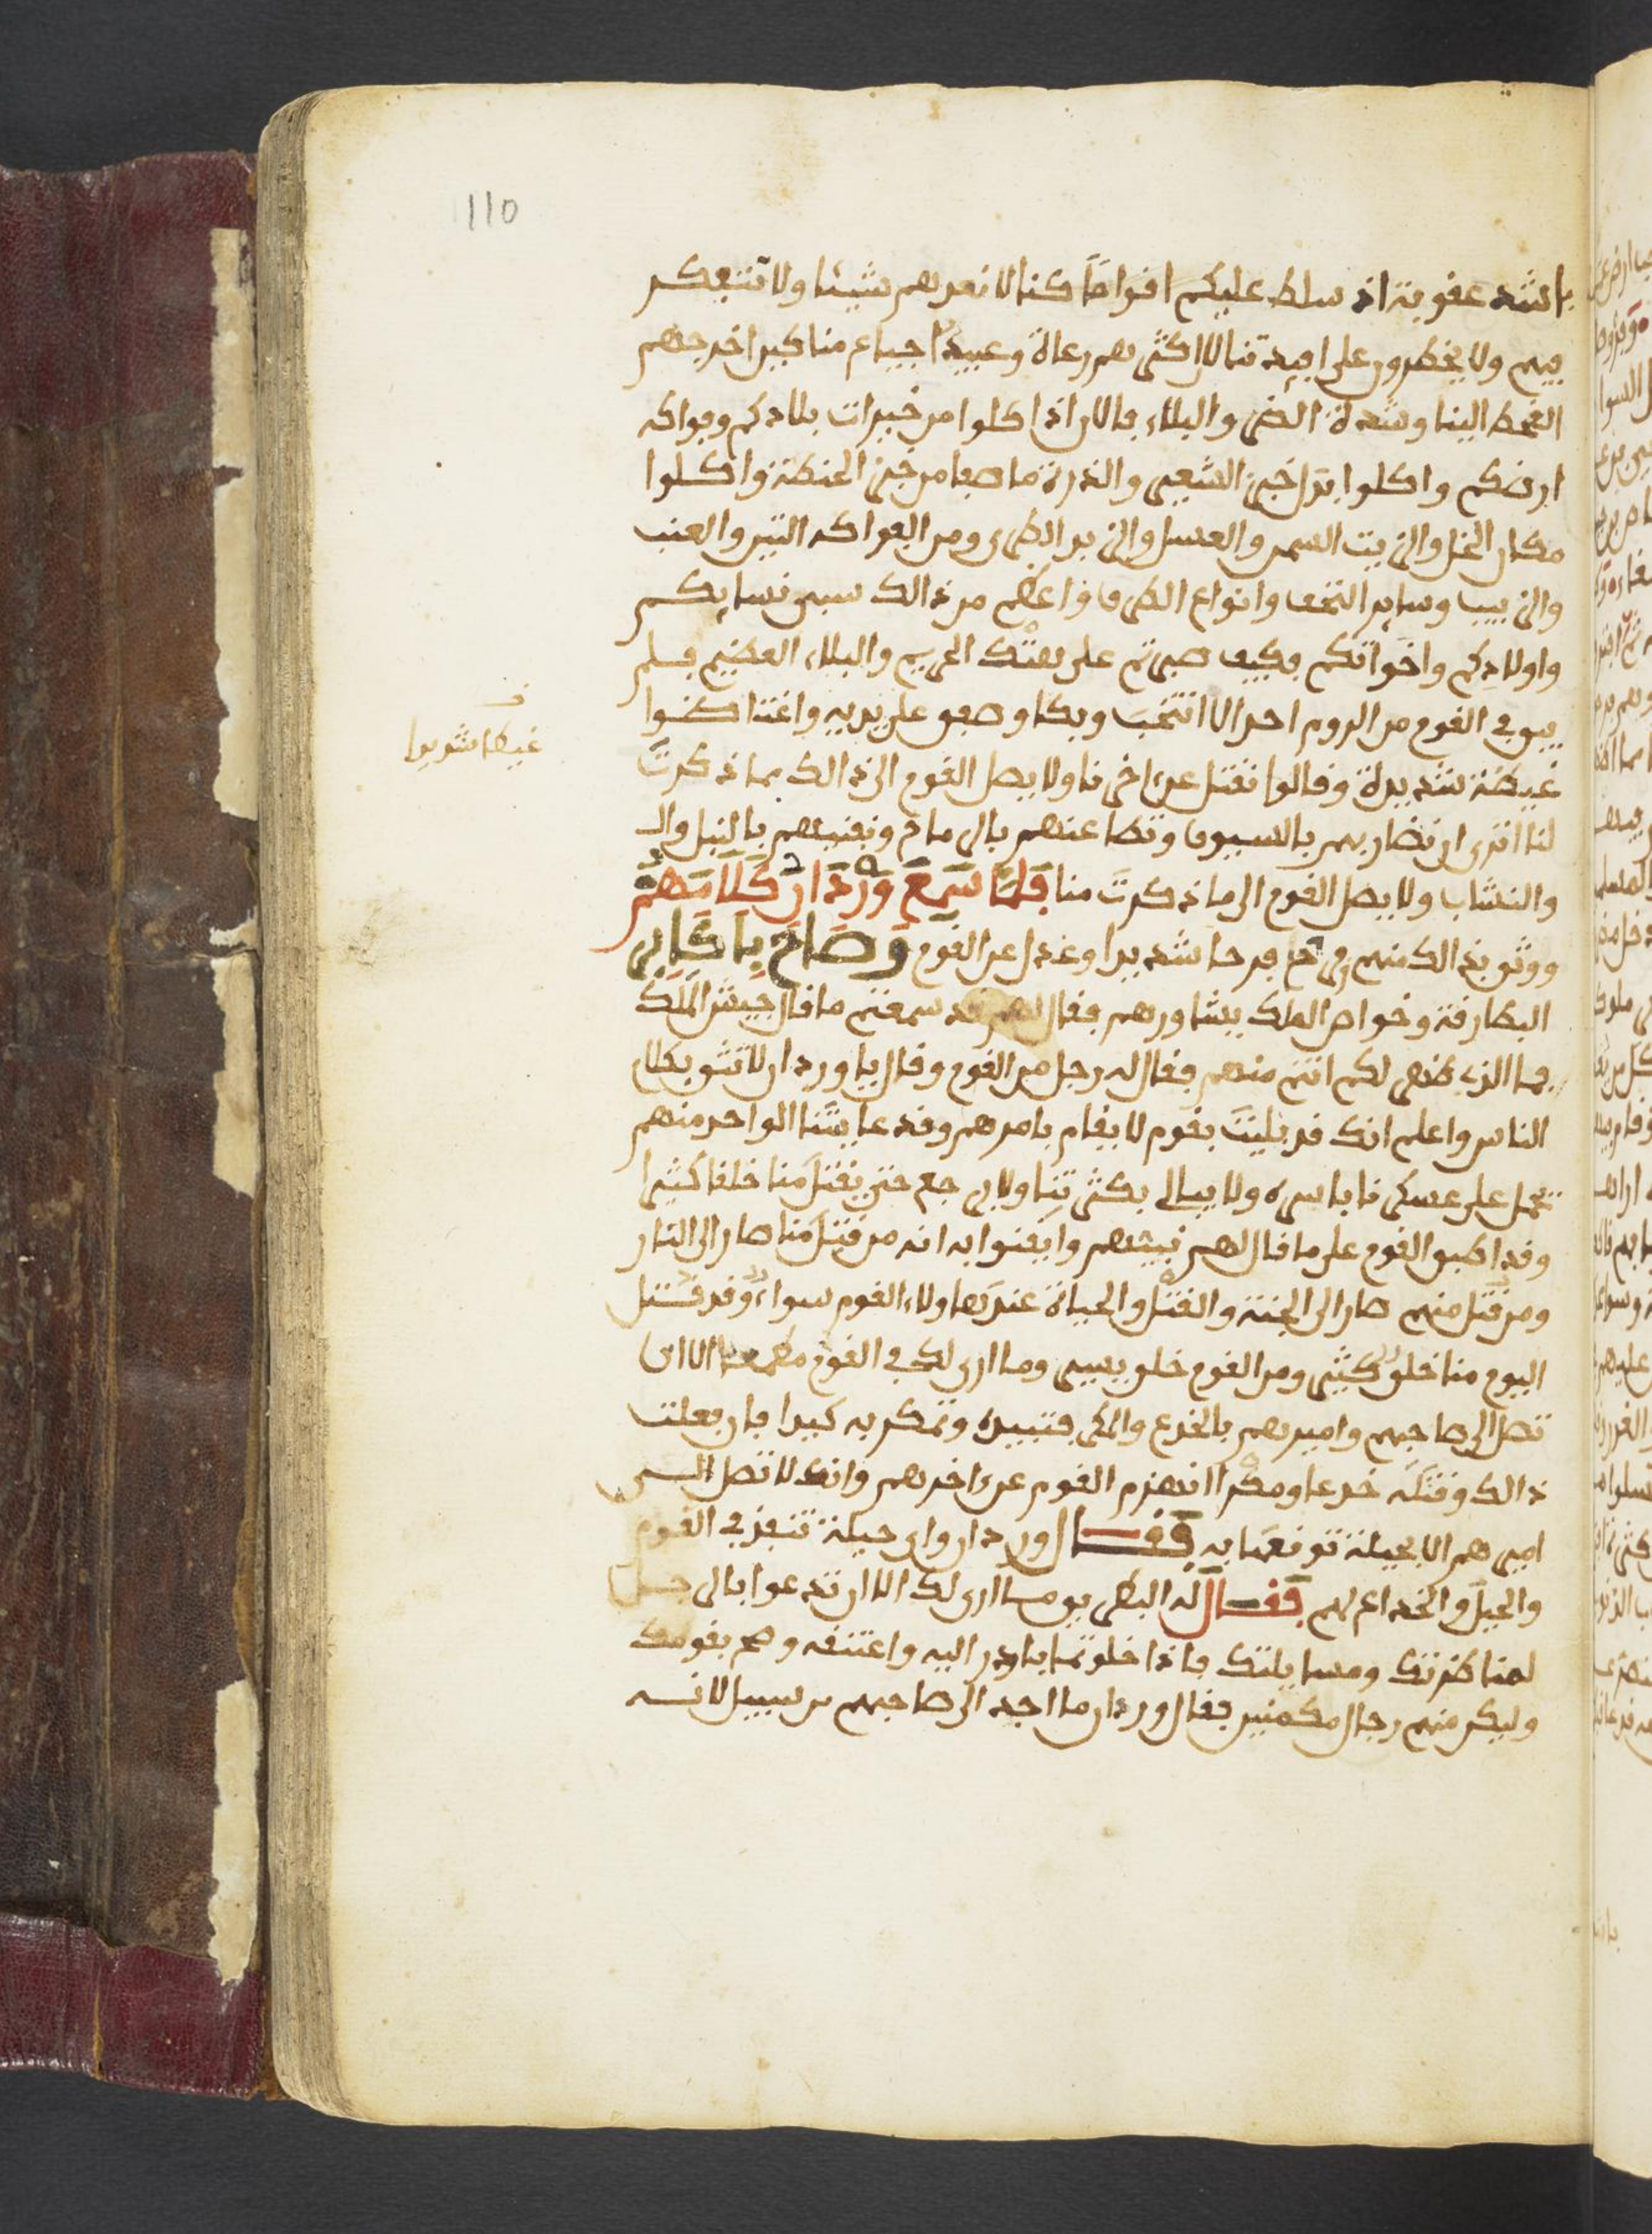 110
باشد عقوبة اذ سلط عليكم اقواما كنا لا نعدهم شيئا ولا نتفكر
فيهم ولا يخطرون على افيدتنا لان اكثرهم رعاة وعبيدا جياع مناكير اخرجهم
القحط الينا وشدة الضر والبلاء فالان اذا اكلوا من خيرات بلادكم وفواكه
ارضكم واكلوا بدل خبز الشعير والذرة ما صفا من خبز الحنطة واكلوا
مكان الخل والزيت السمن والعسل والزبد الطري ومن الفواكه التين والعنب
والزبيب وساير التحف وانواع الطرف واعظم من ذالك سبي نسايكم
واولادكم واخواتكم فكيف صبرتم على هتك الحريم والبلاء العظيم فلم
يبق في القوم من الروم احد الا انتحب وبكا وصفق على يديه واغتاظوا
غيظة شديدة وقالوا نقتل عن اخرنا ولا يصل القوم الى ذالك مما ذكرت
لنا اترى ان نضاربهم بالسيوف ونطاعنهم بالرماح ونفنيهم بالنبل وال
والنشاب ولا يصل القوم الى ما ذكرت منا فلما سمع وردان كلامهم
ووثق بذالك منهم فرح فرحا شديدا وعدل عن القوم وصاح باكابر
البطارقة وخواص الملك يشاورهم فقال لهم قد سمعتم ما قال جيش الملك
فما الذي ظهر لكم انتم منهم فقال له رجل من القوم وقال يا وردان لا تثق بكلام
الناس واعلم انك قد بليت بقوم لا يقام بامرهم وقد عاينا الواحد منهم
يحمل على عسكرنا باسره ولا يبالي بكثرتنا ولا يرجع حتى يقتل منا خلقا كثيرا
وقد اطبق القوم على ما قال لهم نبيهم وايقنوا به انه من قتل منا صار الى النار
ومن قتل منهم صار الى الجنة والقتل والحياة عند هاولاء القوم سواء وقد قتل
اليوم منا خلق كثير ومن القوم خلق يسير وما ارى لك في القوم مطمعا الا ان
تصل الى صاحبهم واميرهم بالخدع والمكر فتبيده وتمكر به كيدا فان فعلت
ذالك وقتلته خدعا ومكرا انهزم القوم عن اخرهم وانك لا تصل الى
اميرهم الا بحيلة توقعها به فقال وردان واي حيلة تنفذ في القوم
والحيل والخداع لهم فقال له البطريق ما ارى لك الا ان تدعوا بالرجل
لمناظرتك ومسايلتك فاذا خلوتما بادر اليه واعتنقه وصح بقومك
وليكن منهم رجال مكمنين فقال وردان ما اجد الى صاحبهم من سبيل لانه
غيظا شديدا